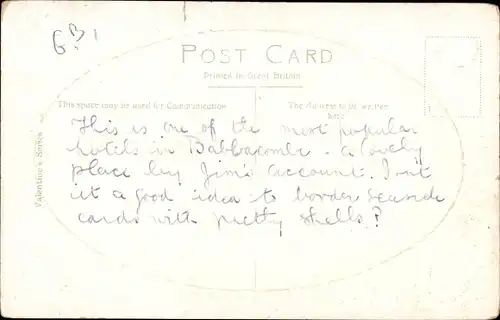 GB1
POST CARD
Printed in Great Britain
This space may be used for Communication
The Address to be written
here
Valentine's Series
This is one of the most popular
hotels in Babbacombe - a lovely
place by Jim's account. Isn't
it a good idea to border seaside
cards with pretty shells?